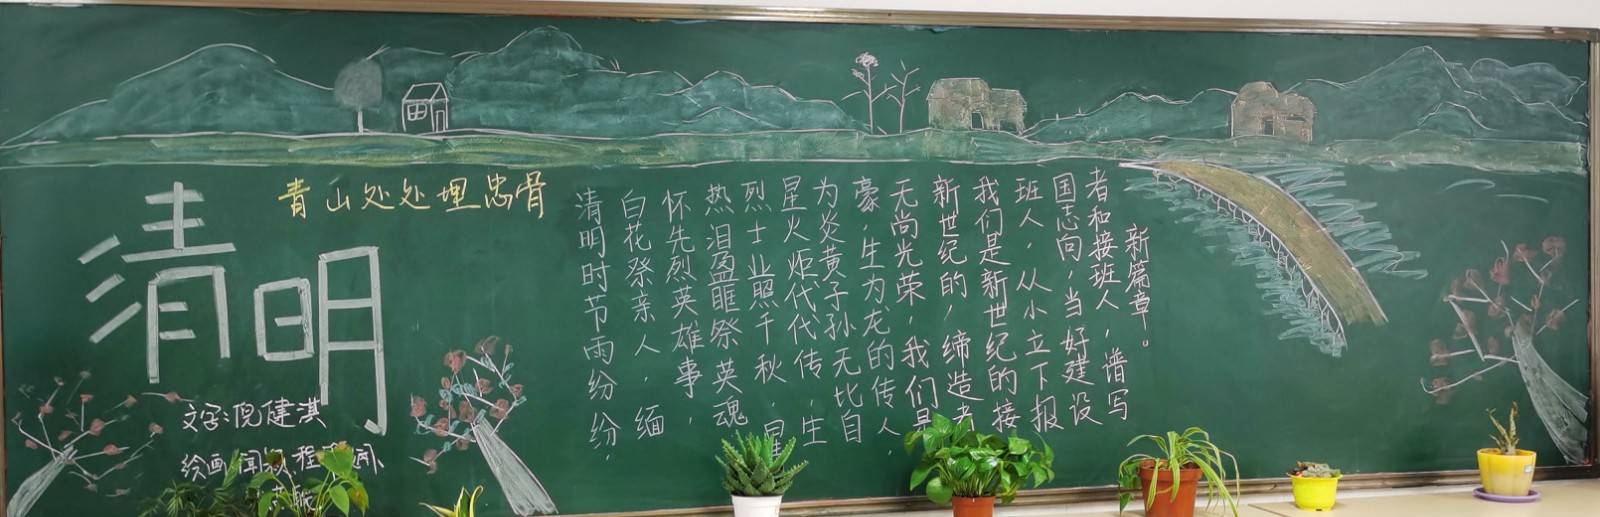 清明
青山处处埋忠骨
清明时节雨纷纷,
白花祭亲人,缅
怀先烈英雄事,
热泪盈眶祭英魂
烈士业照千秋,星
星火炬代代传,生
为炎黄子孙无比自
豪,生为龙的传人,
无尚光荣,我们是
新世纪的,缔造者
我们是新世纪的接
班人,从小立下报
国志向,当好建设
者和接班人,谱写
新篇章。
文字:倪健淇
绘画:闻 程